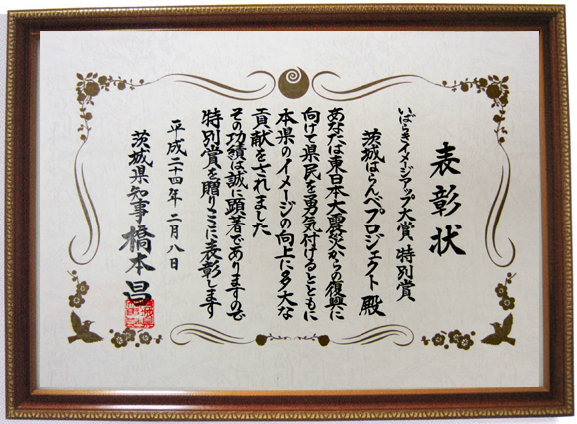 表彰状
いばらきイメージアップ大賞 特別賞
茨城はらんべプロジェクト 殿
あなたは東日本大震災からの復興に
向けて県民を勇気付けるとともに
本県のイメージの向上に多大な
貢献をされました
その功績は誠に顕著でありますので
特別賞を贈りここに表彰します
平成二十四年 二月八日
茨城県知事 橋本昌